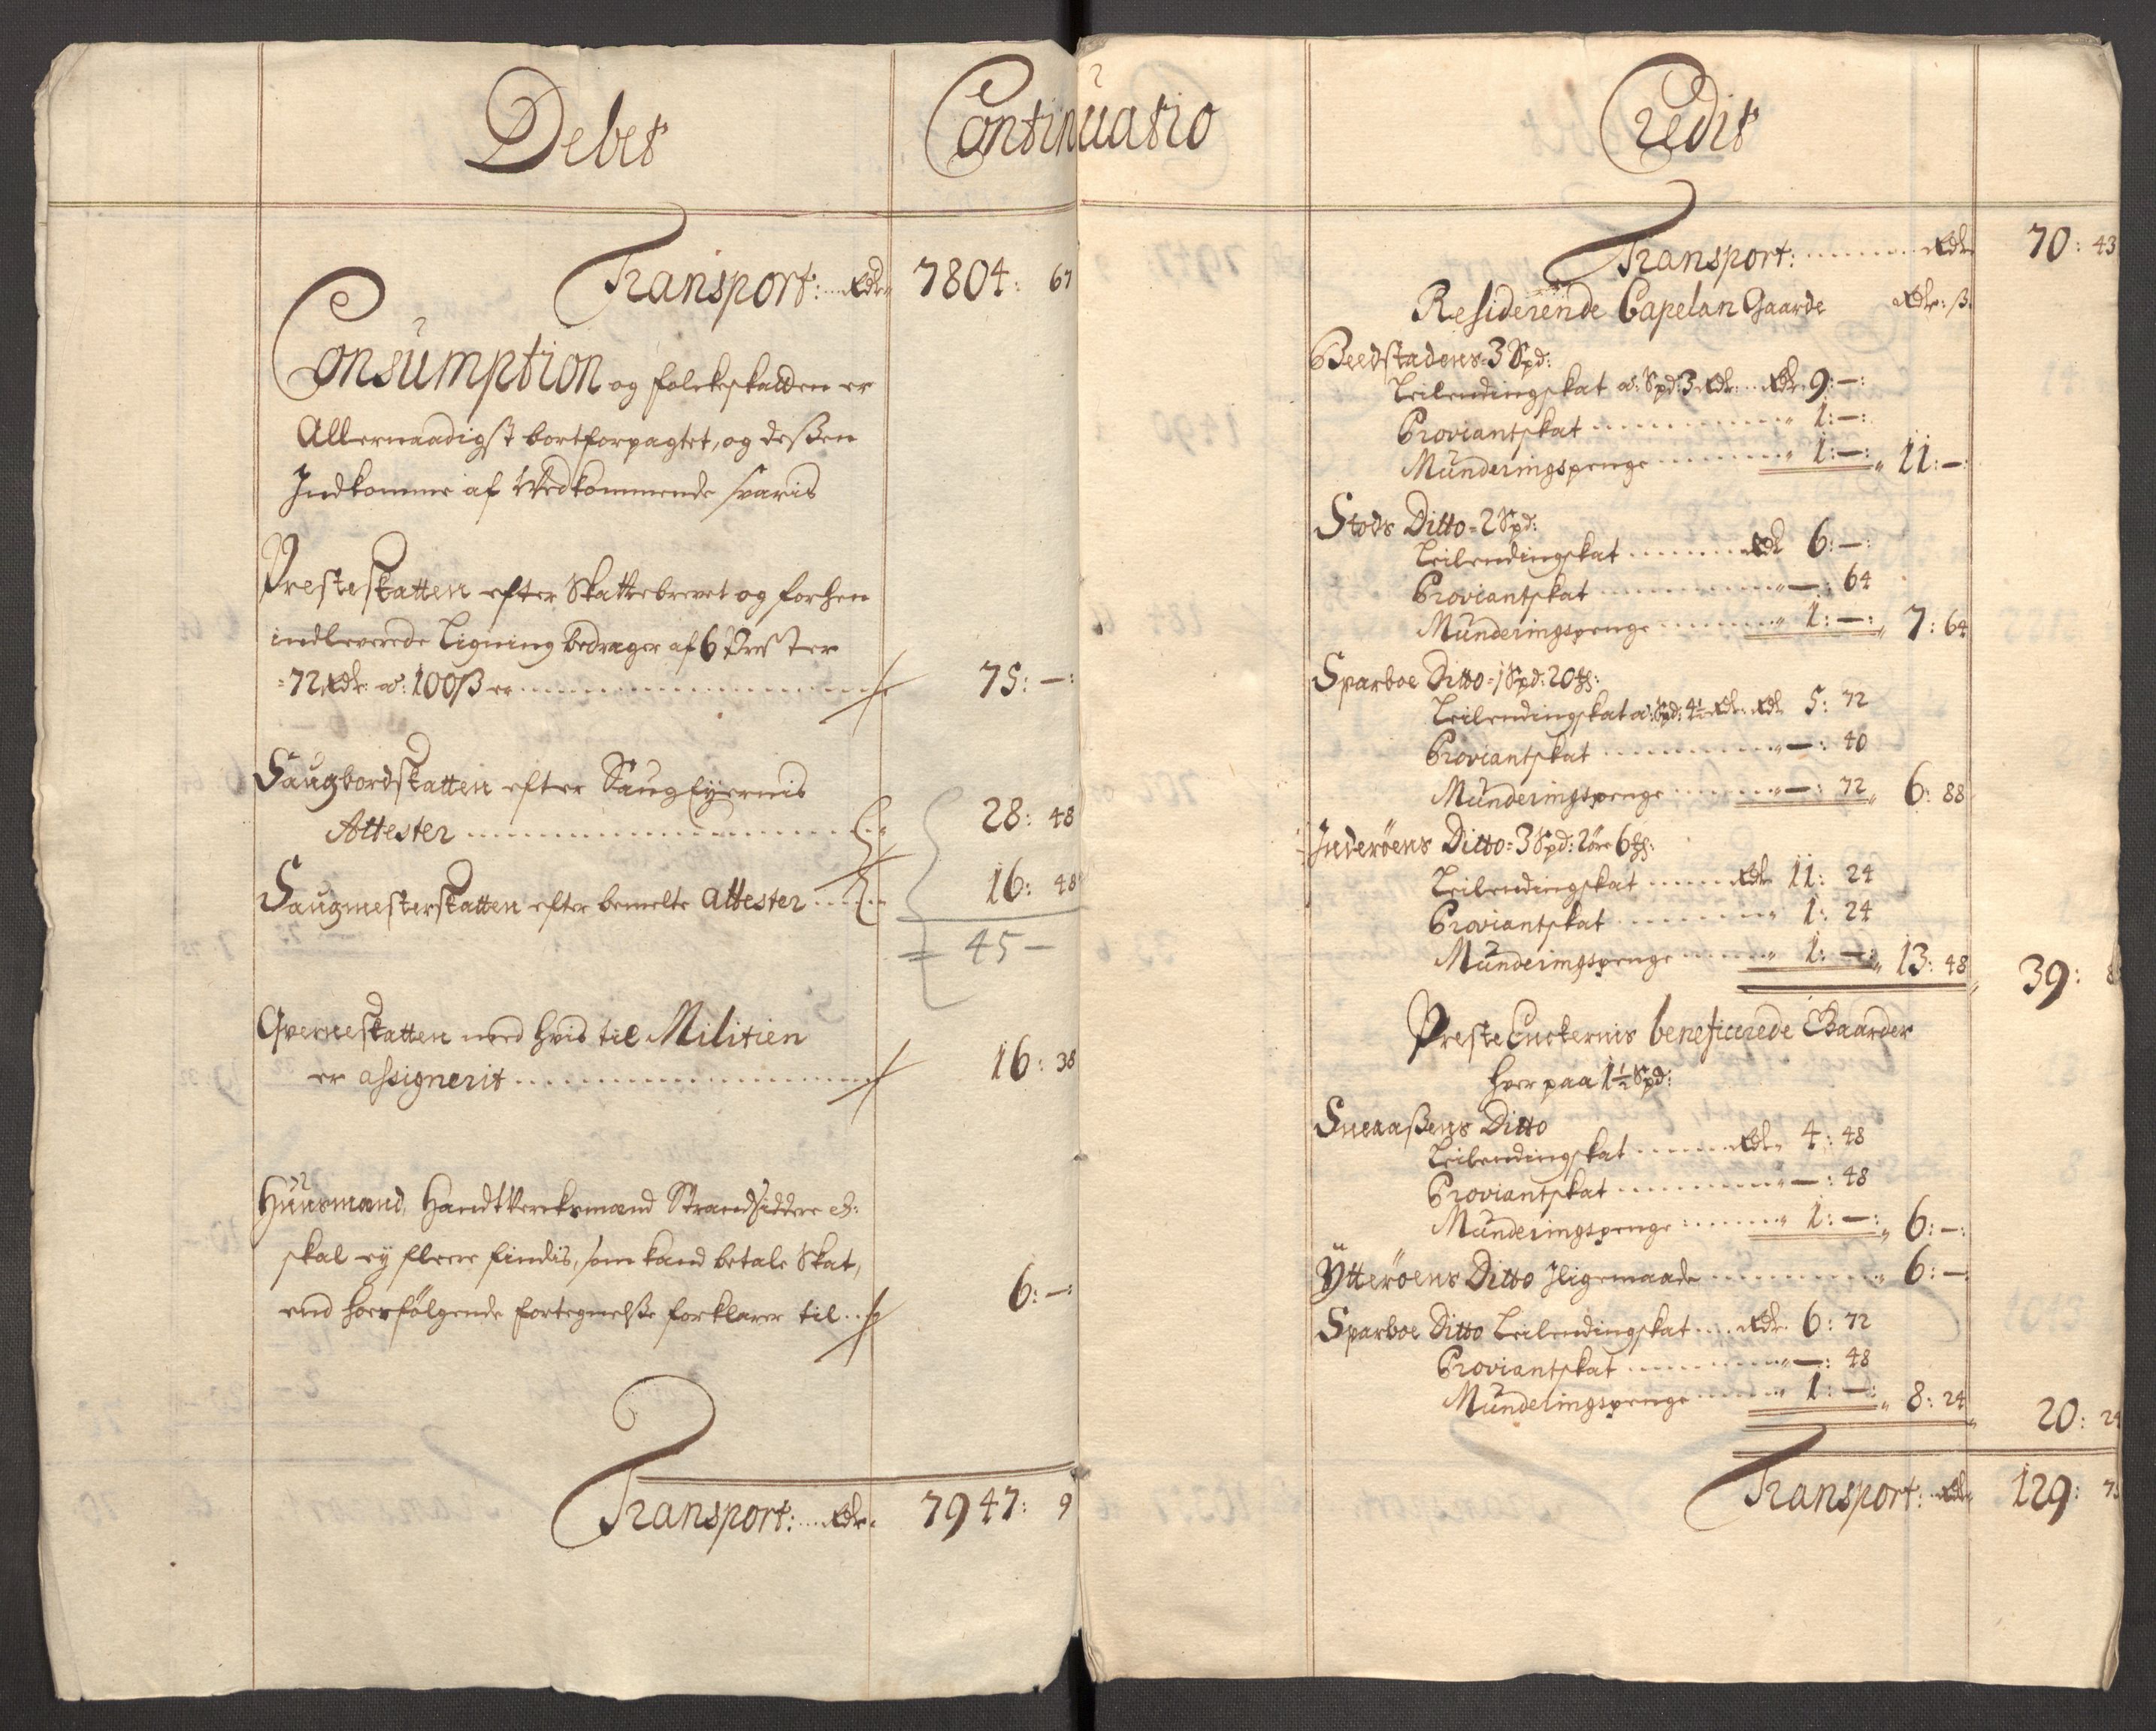 Debet
Continuatio
Transport: .... Rdr. 7804: 67
Consumption og folckeskatten er
Allernaadigst bortforpagtet, og dessen
Indkomme af Wedkommende svaris
Presteskatten efter Skattebrevet og forhen
indleverede Ligning bedrager af 6 Prester
= 72 Rdr. a: 100 ß er .... 75: —:
Saugbordskatten efter Saug Eyernis
Attester .... 28: 48
Saugmesterskatten efter bemelte Attester .... 16: 48
= 45 —
Qverneskatten med hvis til Militien
er assignerit .... 16: 38
Huusmænd, Handtverksmænd Strandsiddere etc:
skal ey fleere findis, som kand betale Skat,
end hosfølgende fortegnelsse forklarer til .... 6: —:
Transport: .... Rdr. 7947: 9
Credit
Transport: .... Rdr. 70: 43
Residerende Capelan Gaarde Rdr: ß:
Beedstadens = 3 Spd:
Leilendingskat a: Spd: 3 Rdr: .. Rdr: 9: —:
Proviantskat .... 1: —:
Munderingspenge .... 1: —: 11: —:
Stods Ditto = 2 Spd:
Leilendingskat .... Rdr 6: —:
Proviantskat .... —: 64
Munderingspenge .... 1: —: 7: 64
Sparboe Ditto = 1 Spd: 20 ℔:
Leilendingskat a: Spd: 4½ Rdr. Rdr 5: 72
Proviantskat .... —: 40
Munderingspenge .... —: 72 6: 88
Inderöens Ditto = 3 Spd: 2 öre 6 ℔:
Leilendingskat .... Rdr 11: 24
Proviantskat .... 1: 24
Munderingspenge .... 1: —: 13: 48 39: 8
Preste Enckernis beneficerede Gaarder
hver paa 1½ Spd:
Sneaassens Ditto
Leilendingskat .... Rdr 4: 48
Proviantskat .... —: 48
Munderingspenge .... 1: —: 6: —:
Ytteröens Ditto Iligemaade .... 6: —
Sparboe Ditto Leilendingskat .... Rdr. 6: 72
Proviantskat .... —: 48
Munderingspenge .... 1: —: 8: 24 20: 24
Transport: .. Rdr. 129: